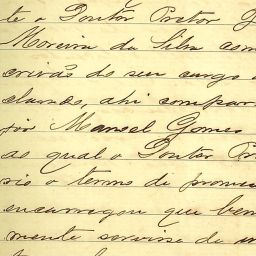 te o Doutor Pretor G
Moreira da Silva com
crivão do seu cargo a
clarado, ahi compar
por Manoel Gomes
ao qual o Doutor Pr
rio o termo de promes
encarregou que bem
mente servisse de